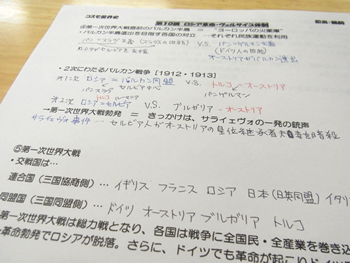 コスモ世界史
第10講 ロシア革命・ヴェルサイユ体制
①第一次世界大戦直前のバルカン半島 = "ヨーロッパの火薬庫"
・バルカン半島進出を目指す各国の対立 … それぞれ民族運動を利用
パン=スラヴ主義 V.S. パン=ゲルマン主義
オーストリアがバルカンへ進出
・2次にわたるバルカン戦争【1912・1913】
オ1次 ロシア=バルカン同盟 V.S. トルコ=オーストリア
オ2次 ロシア=セルビア V.S. ブルガリア = オーストリア
第一次世界大戦勃発 = きっかけは、サライェヴォの一発の銃声
サライェヴォ事件…セルビア人がオーストリアの皇位
⑤第一次世界大戦
・交戦国は…
連合国(三国協商側)… イギリス フランス ロシア 日本(日英同盟) イタリ
同盟国(三国同盟側)… ドイツ オーストリア ブルガリア トルコ
第一次世界大戦は総力戦となり、各国は戦争に全国民・全産業を巻き込
革命勃発でロシアが脱落。さらに、ドイツでも革命が起こりドイツ